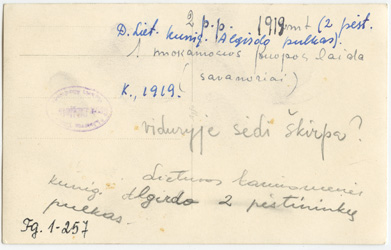 2 p.p. 1919 mt (2 pėst.
D. Liet. kunig. Algirdo pulkas).
1 mokamosios kuopos laida
(savanoriai)
K., 1919.
viduryje sėdi Škirpa?
Lietuvos
kunig. Algirdo 2 pėstininkų
pulkas.
Fg. 1-257